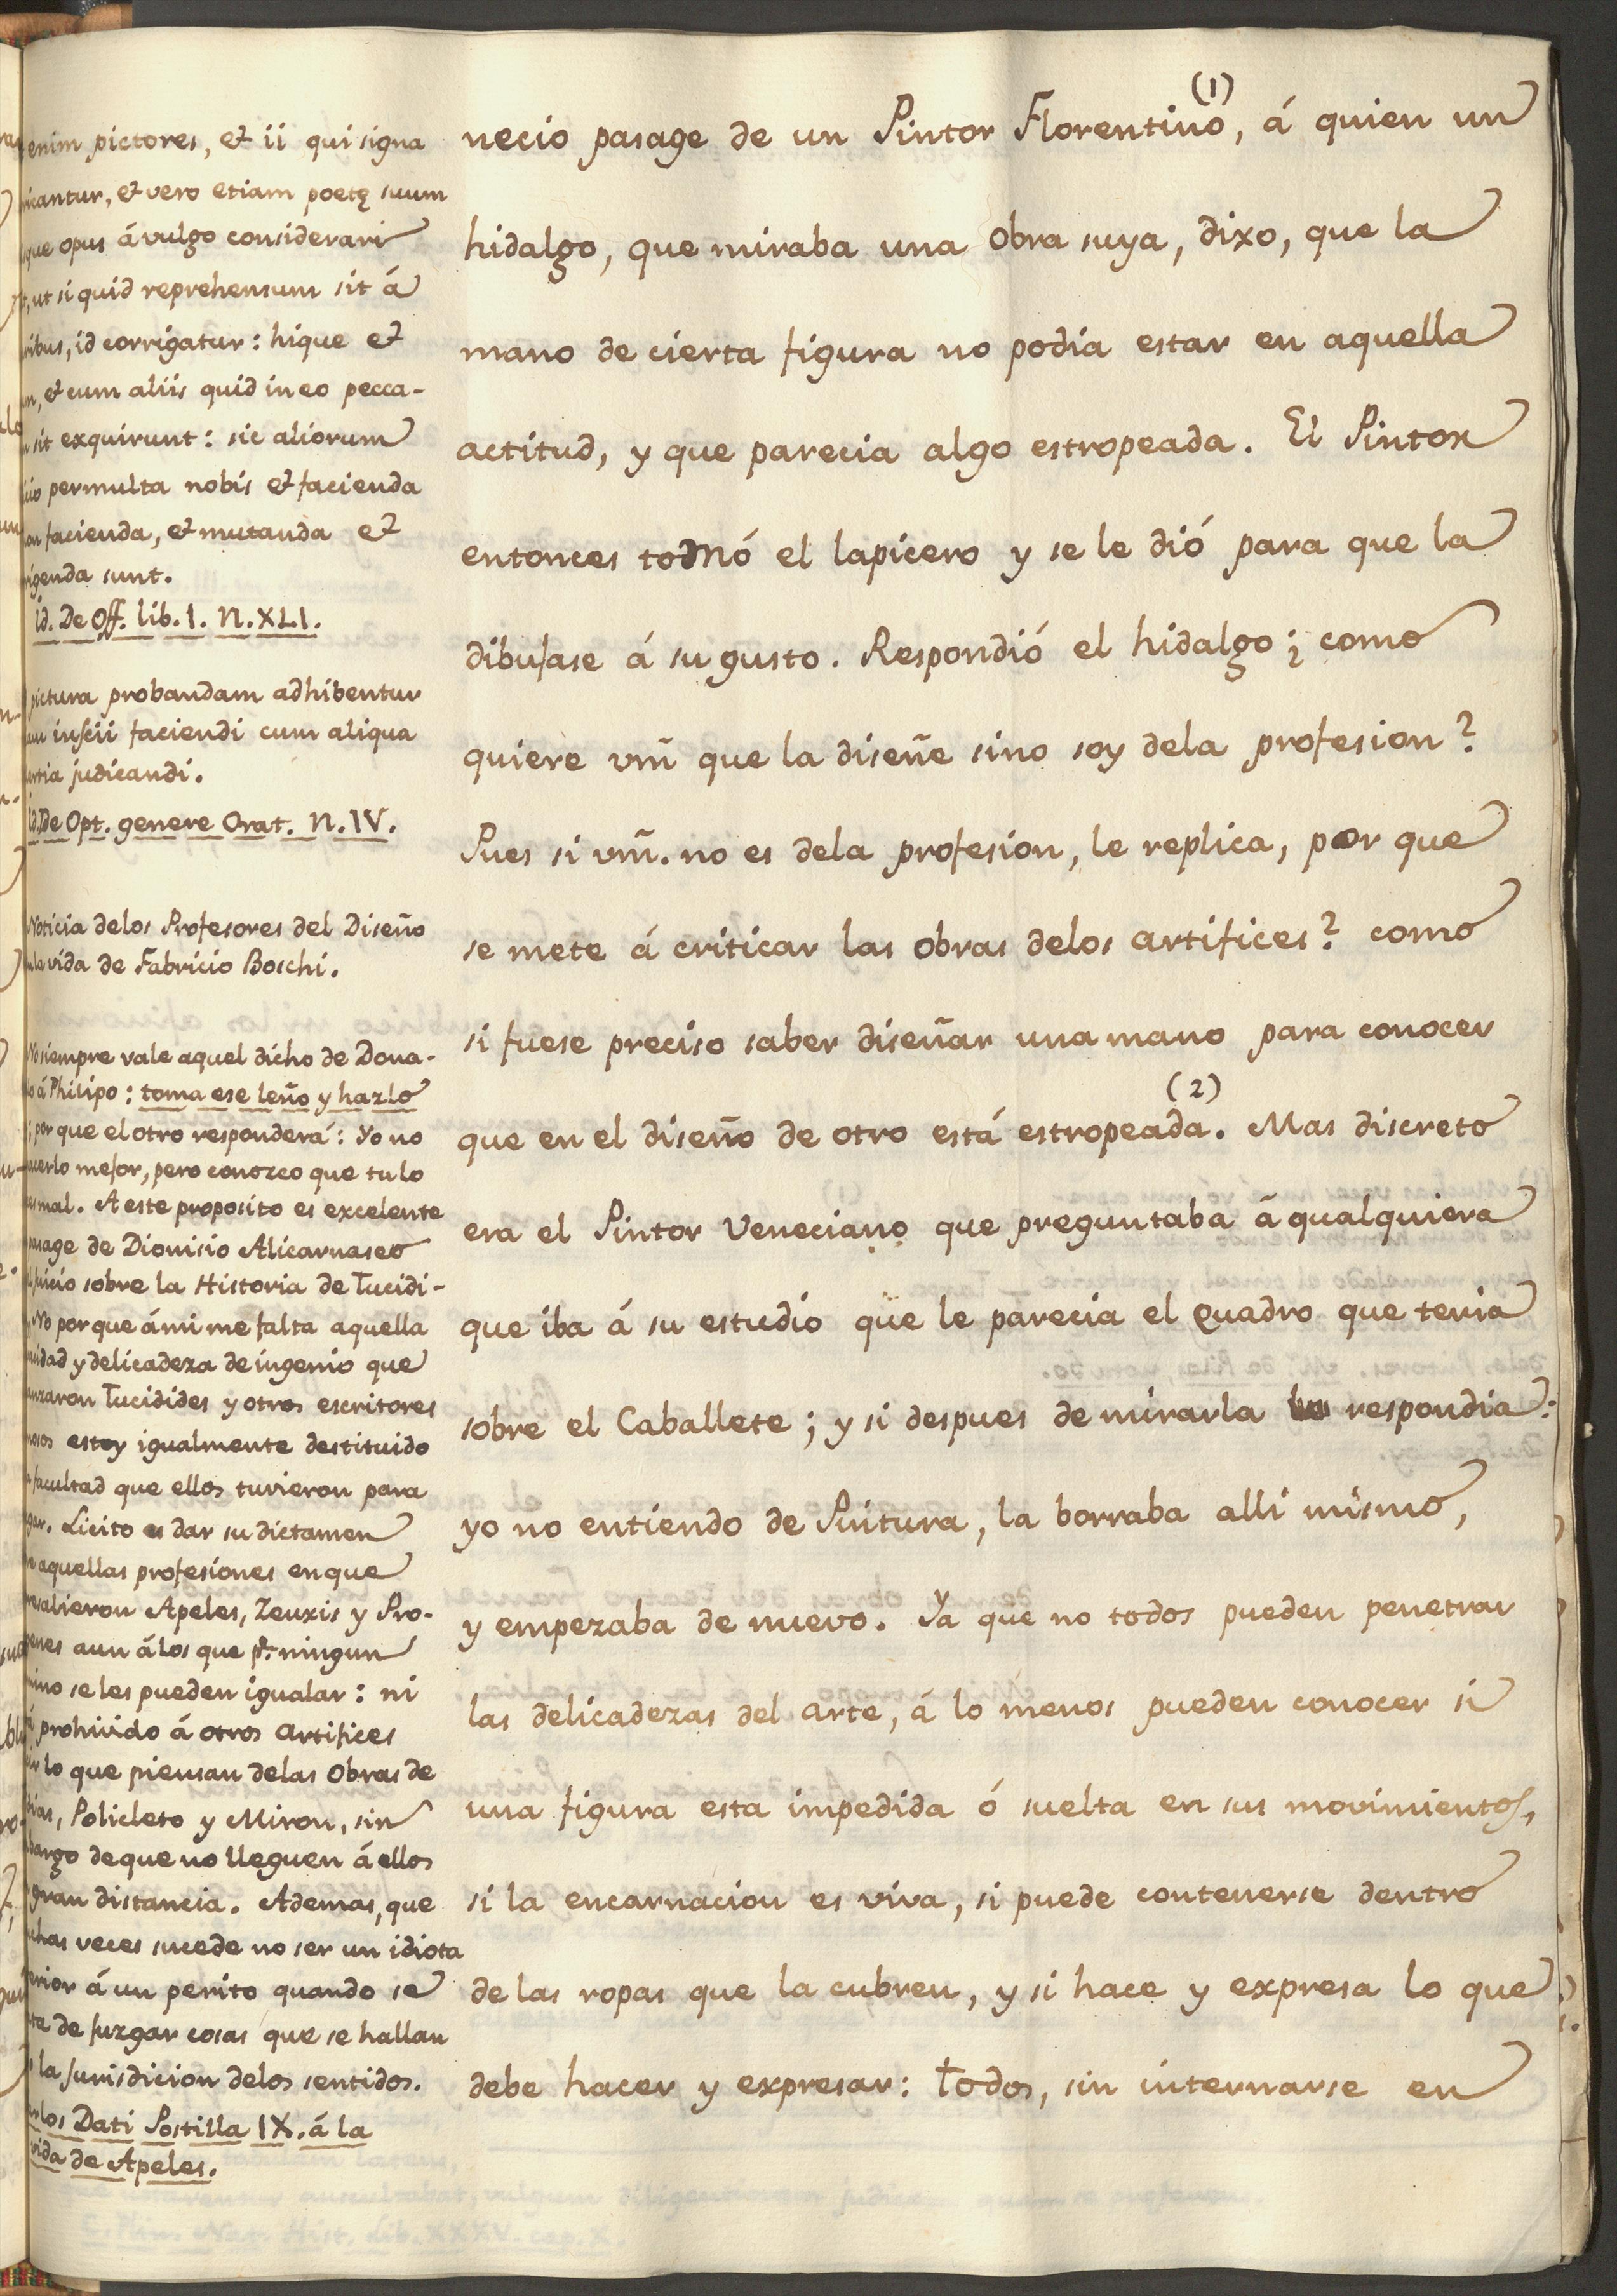 enim pictores, et ii qui signa
icantur, et vero etiam poetę suum
que opus á vulgo considerari
ut si quid reprehensum sit á
ribus, id corrigatur: hique et
et cum aliis quid in eo pecca-
sit exquirunt: sic aliorum
permulta nobis et facienda
facienda, et mutanda et
rigenda sunt.
id. De Off. lib. I. N. XLI.
pictura probandam adhibentur
inscii faciendi cum aliqua
ertia judicandi.
id. De Opt. genere Orat. N. IV.
Noticia delos Profesores del Diseño
la vida de Fabricio Boschi.
No siempre vale aquel dicho de Dona-
o á Philipo: toma ese leño y hazlo
; por que el otro responderá: Yo no
acerlo mejor, pero conozco que tu lo
es mal. A este proposito es excelente
pasage de Dionisio Alicarnaseo
juicio sobre la Historia de Tucidi-
No por que á mi me falta aquella
nidad y delicadeza de ingenio que
anzaron Tucidides y otros escritores
mosos estoy igualmente destituido
facultad que ellos tuvieron para
gar. Licito es dar su dictamen
aquellas profesiones en que
resalieron Apeles, Zeuxis y Pro-
genes aun á los que pr. ningun
mino se les pueden igualar: ni
prohivido á otros Artifices
lo que piensan delas Obras de
dias, Policleto y Miron, sin
bargo de que no lleguen á ellos
gran distancia. Ademas, que
chas veces sucede no ser un idiota
erior á un perito quando se
ta de juzgar cosas que se hallan
la jurisdicion delos sentidos.
arlos Dati Postilla IX. á la
vida de Apeles.
necio pasage de un Pintor Florentino (1), á quien un
hidalgo, que miraba una obra suya, dixo, que la
mano de cierta figura no podia estar en aquella
actitud, y que parecia algo estropeada. El Pintor
entonces tomó el lapicero y se le dió para que la
dibujase á su gusto. Respondió el hidalgo ¿ como
quiere vm̃ que la diseñe sino soy dela profesion?
Pues si vm̃. no es dela profesion, le replica, por que
se mete á criticar las obras delos artifices? como
si fuese preciso saber diseñar una mano para conocer
que en el diseño de otro está estropeada. (2) Mas discreto
era el Pintor Veneciano que preguntaba á qualquiera
que iba á su estudio que le parecia el quadro que tenia
sobre el Caballete; y si despues de mirarla respondia:
yo no entiendo de Pintura, la borraba alli mismo,
y empezaba de nuevo. Ya que no todos pueden penetrar
las delicadezas del arte, á lo menos pueden conocer si
una figura esta impedida ó suelta en sus movimientos,
si la encarnacion es viva, si puede contenerse dentro
de las ropas que la cubren, y si hace y expresa lo que
debe hacer y expresar: todos, sin internarse en